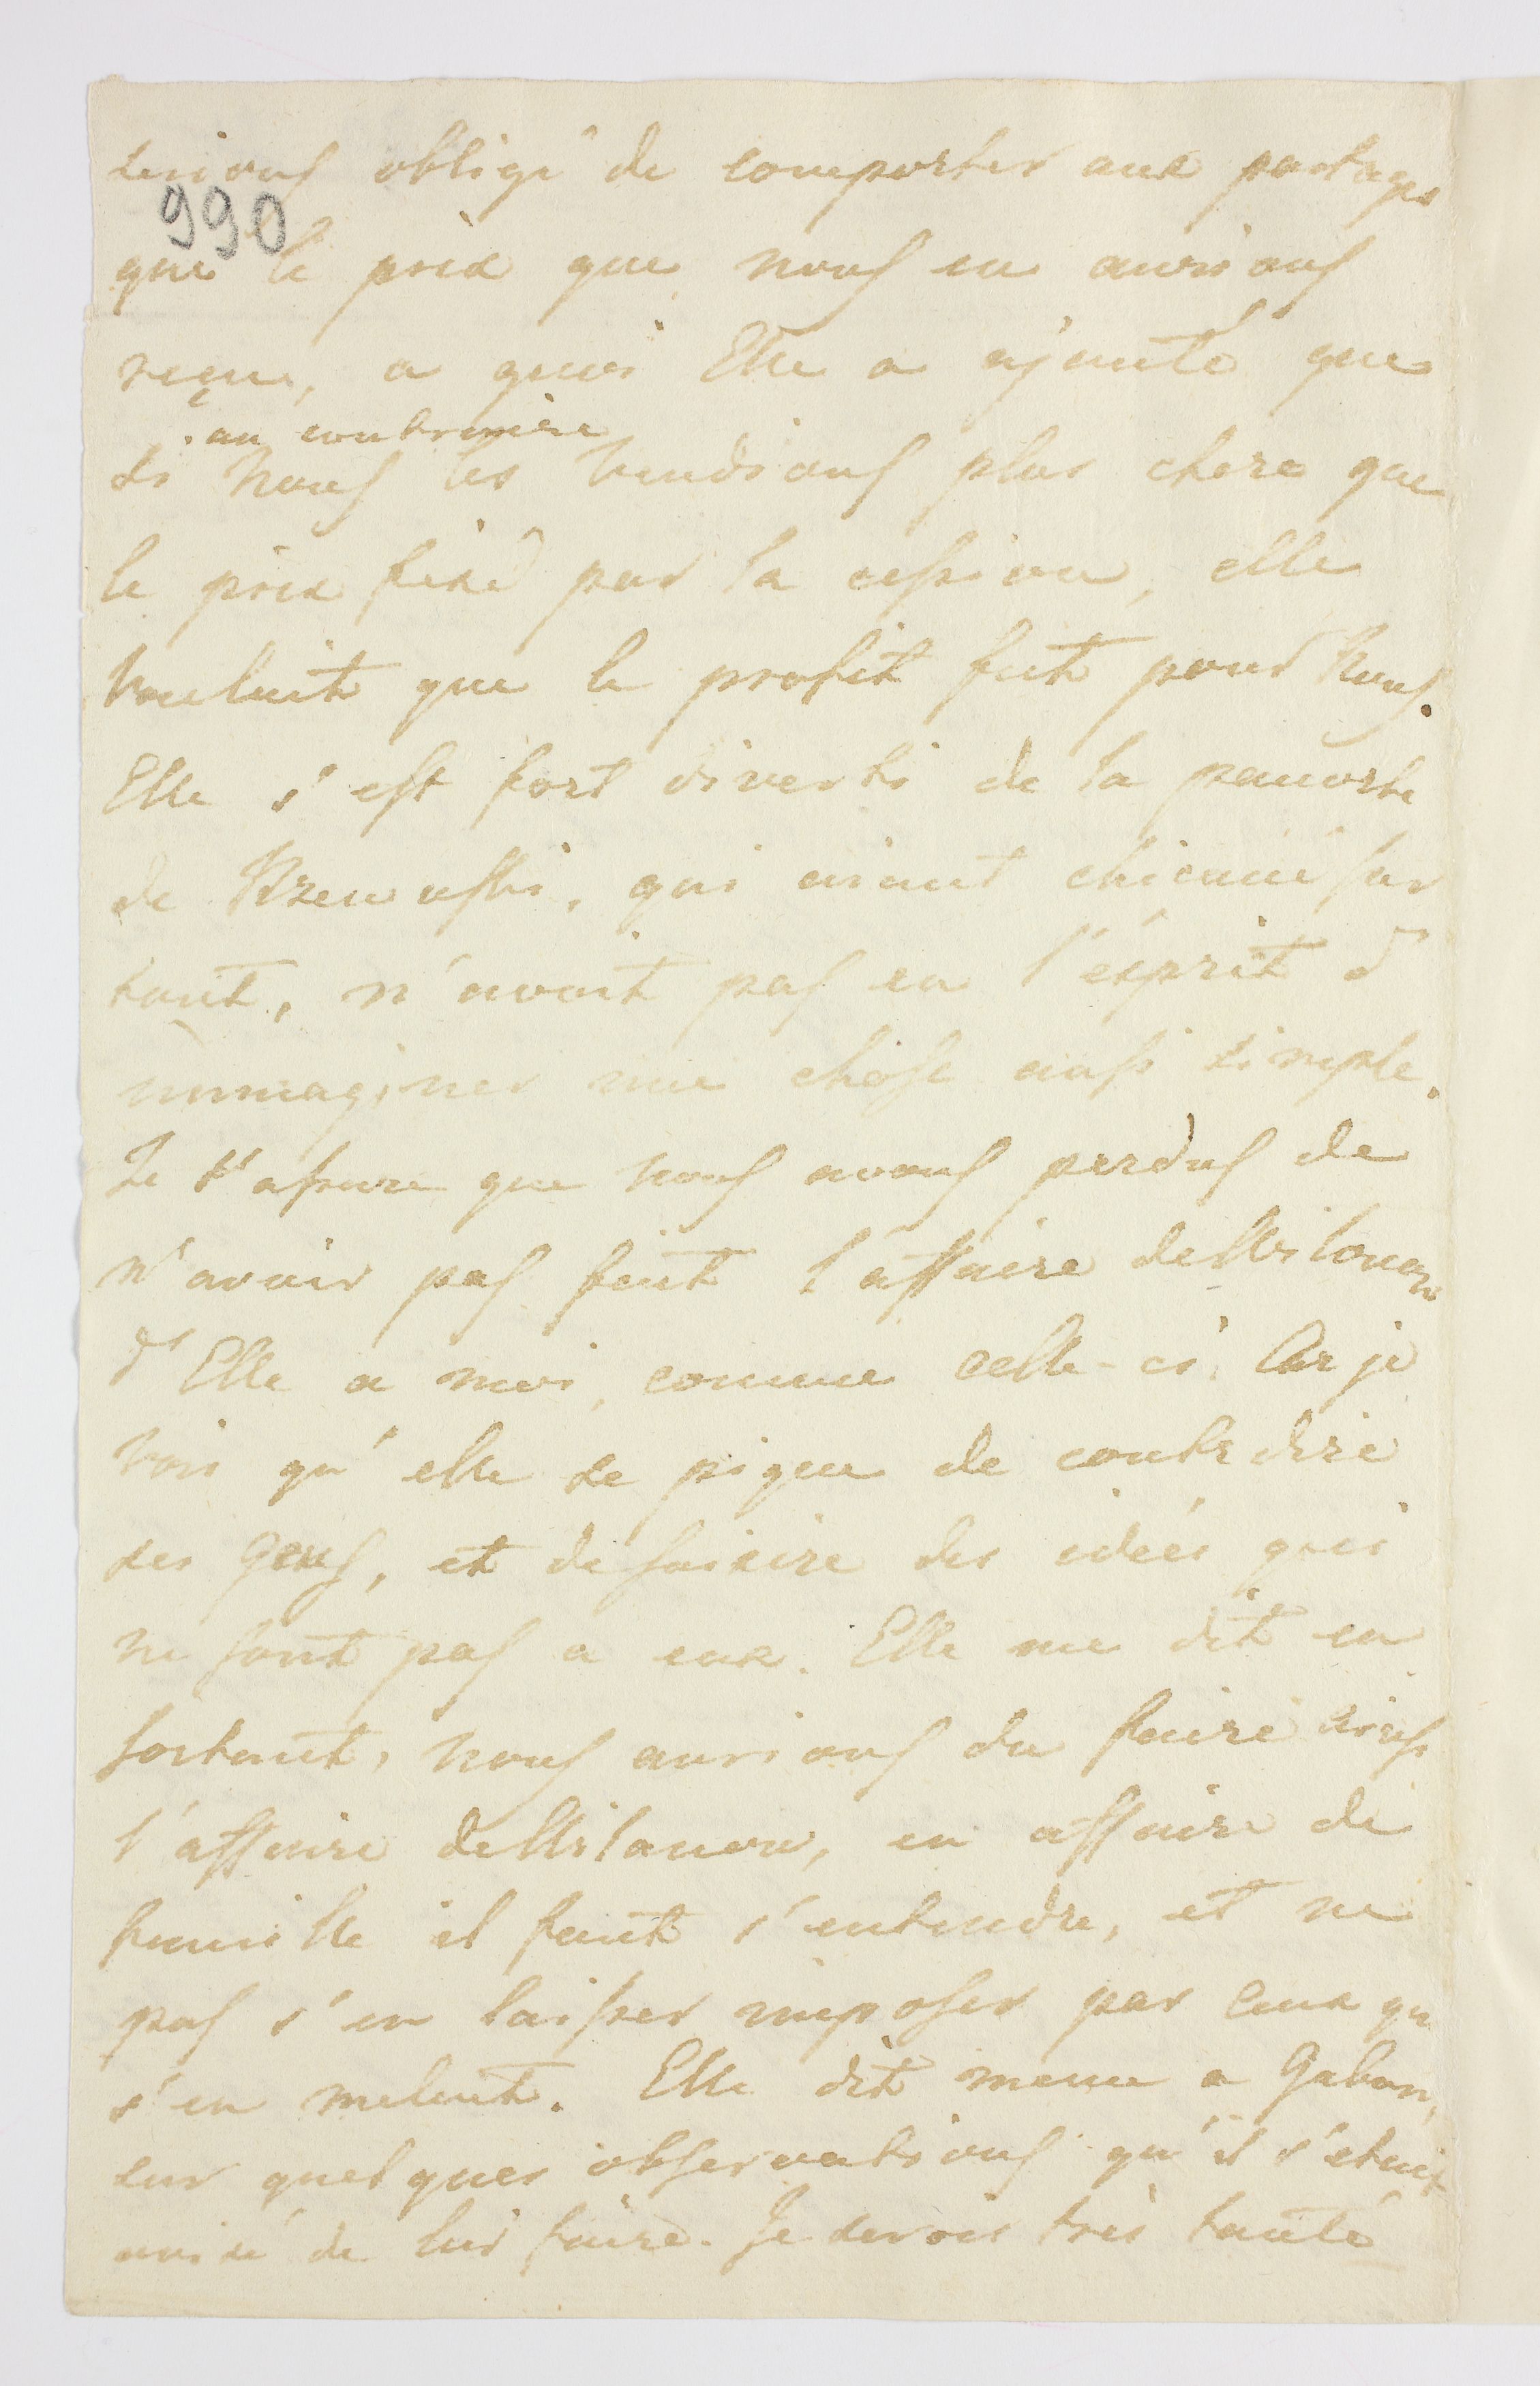 serions obligé de comporter aux partages
990
que le prix que nous en aurions
reçu, a quoi Elle a ajouté que
au contraire
si nous les vendions plus chere que
le prix fixé par la cession, elle
vouloit que le profit fut pour nous.
Elle s'est fort diverti de la pauvorte
de Rzewuski, qui aiant chicané sur
tout, n'avoit pas eu l'ésprit d'
immaginer une chose ausi simple.
Je t'assure que nous avons perdus de
n'avoir pas fait l'affaire de Wilanow
d'Elle a moi, comme celle-ci, Car je
vois qu'elle se pique de contredire
ses Gens, et de saisire des idées qui
ne sont pas a eux. Elle me dit en
sortant, nous aurions du faire ainsi
l'affaire de Wilanow, en affaire de
famille il faut s'entendre, et ne
pas s'en laisser imposer par Ceux qui
s'en melent. Elle dit meme a
sur quelques observations qu'il s'etoit
avisé de lui faire. Je serois très tenté